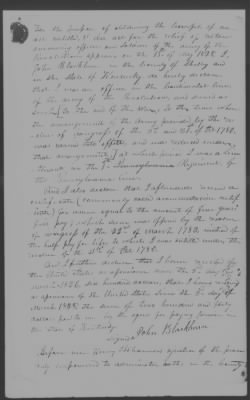 For the purpose of obtaining the benefit of an
act entitled "An act for the relief of certain
surviving officers and Soldiers of the Army of the
Revolution approved on the 15th of May 1828 I,
John Blackburn in the County of Shelby and
in the State of Kentucky do hereby declare
that I was an officer in the Continental line
of the Army of the Revolution and served as
such to the end of the war, at the time when
the arrangement of the Army provided by the re-
solves of Congress of the 3rd and 21st of Oct 1780.
was carried into effect and was reduced under
that arrangement at which period I was a lieu-
tenant in the Pennsylvania Regiment of
the Pennsylvania line.
And I also declare that I afterwards received a
certificate (commonly called commutation certif-
icate) for a sum equal to the amount of five years
full pay; which sum was offered by the resolve
of Congress of the 22nd of March 1783 instead of
the half pay for life, to which I was entitled under the
resolve of the 21st of Oct. 1780.
And I further declare that I have received of
the United States as aforesaid since the 3rd day of
March 1826
as pensioner of the United States since the 3rd day of
March 1828 the sum of two hundred and forty
dollars paid to me by the agent for paying pensions in
the State of Kentucky.
Signed John Blackburn
Before me
duly empowered to administer oaths in the County